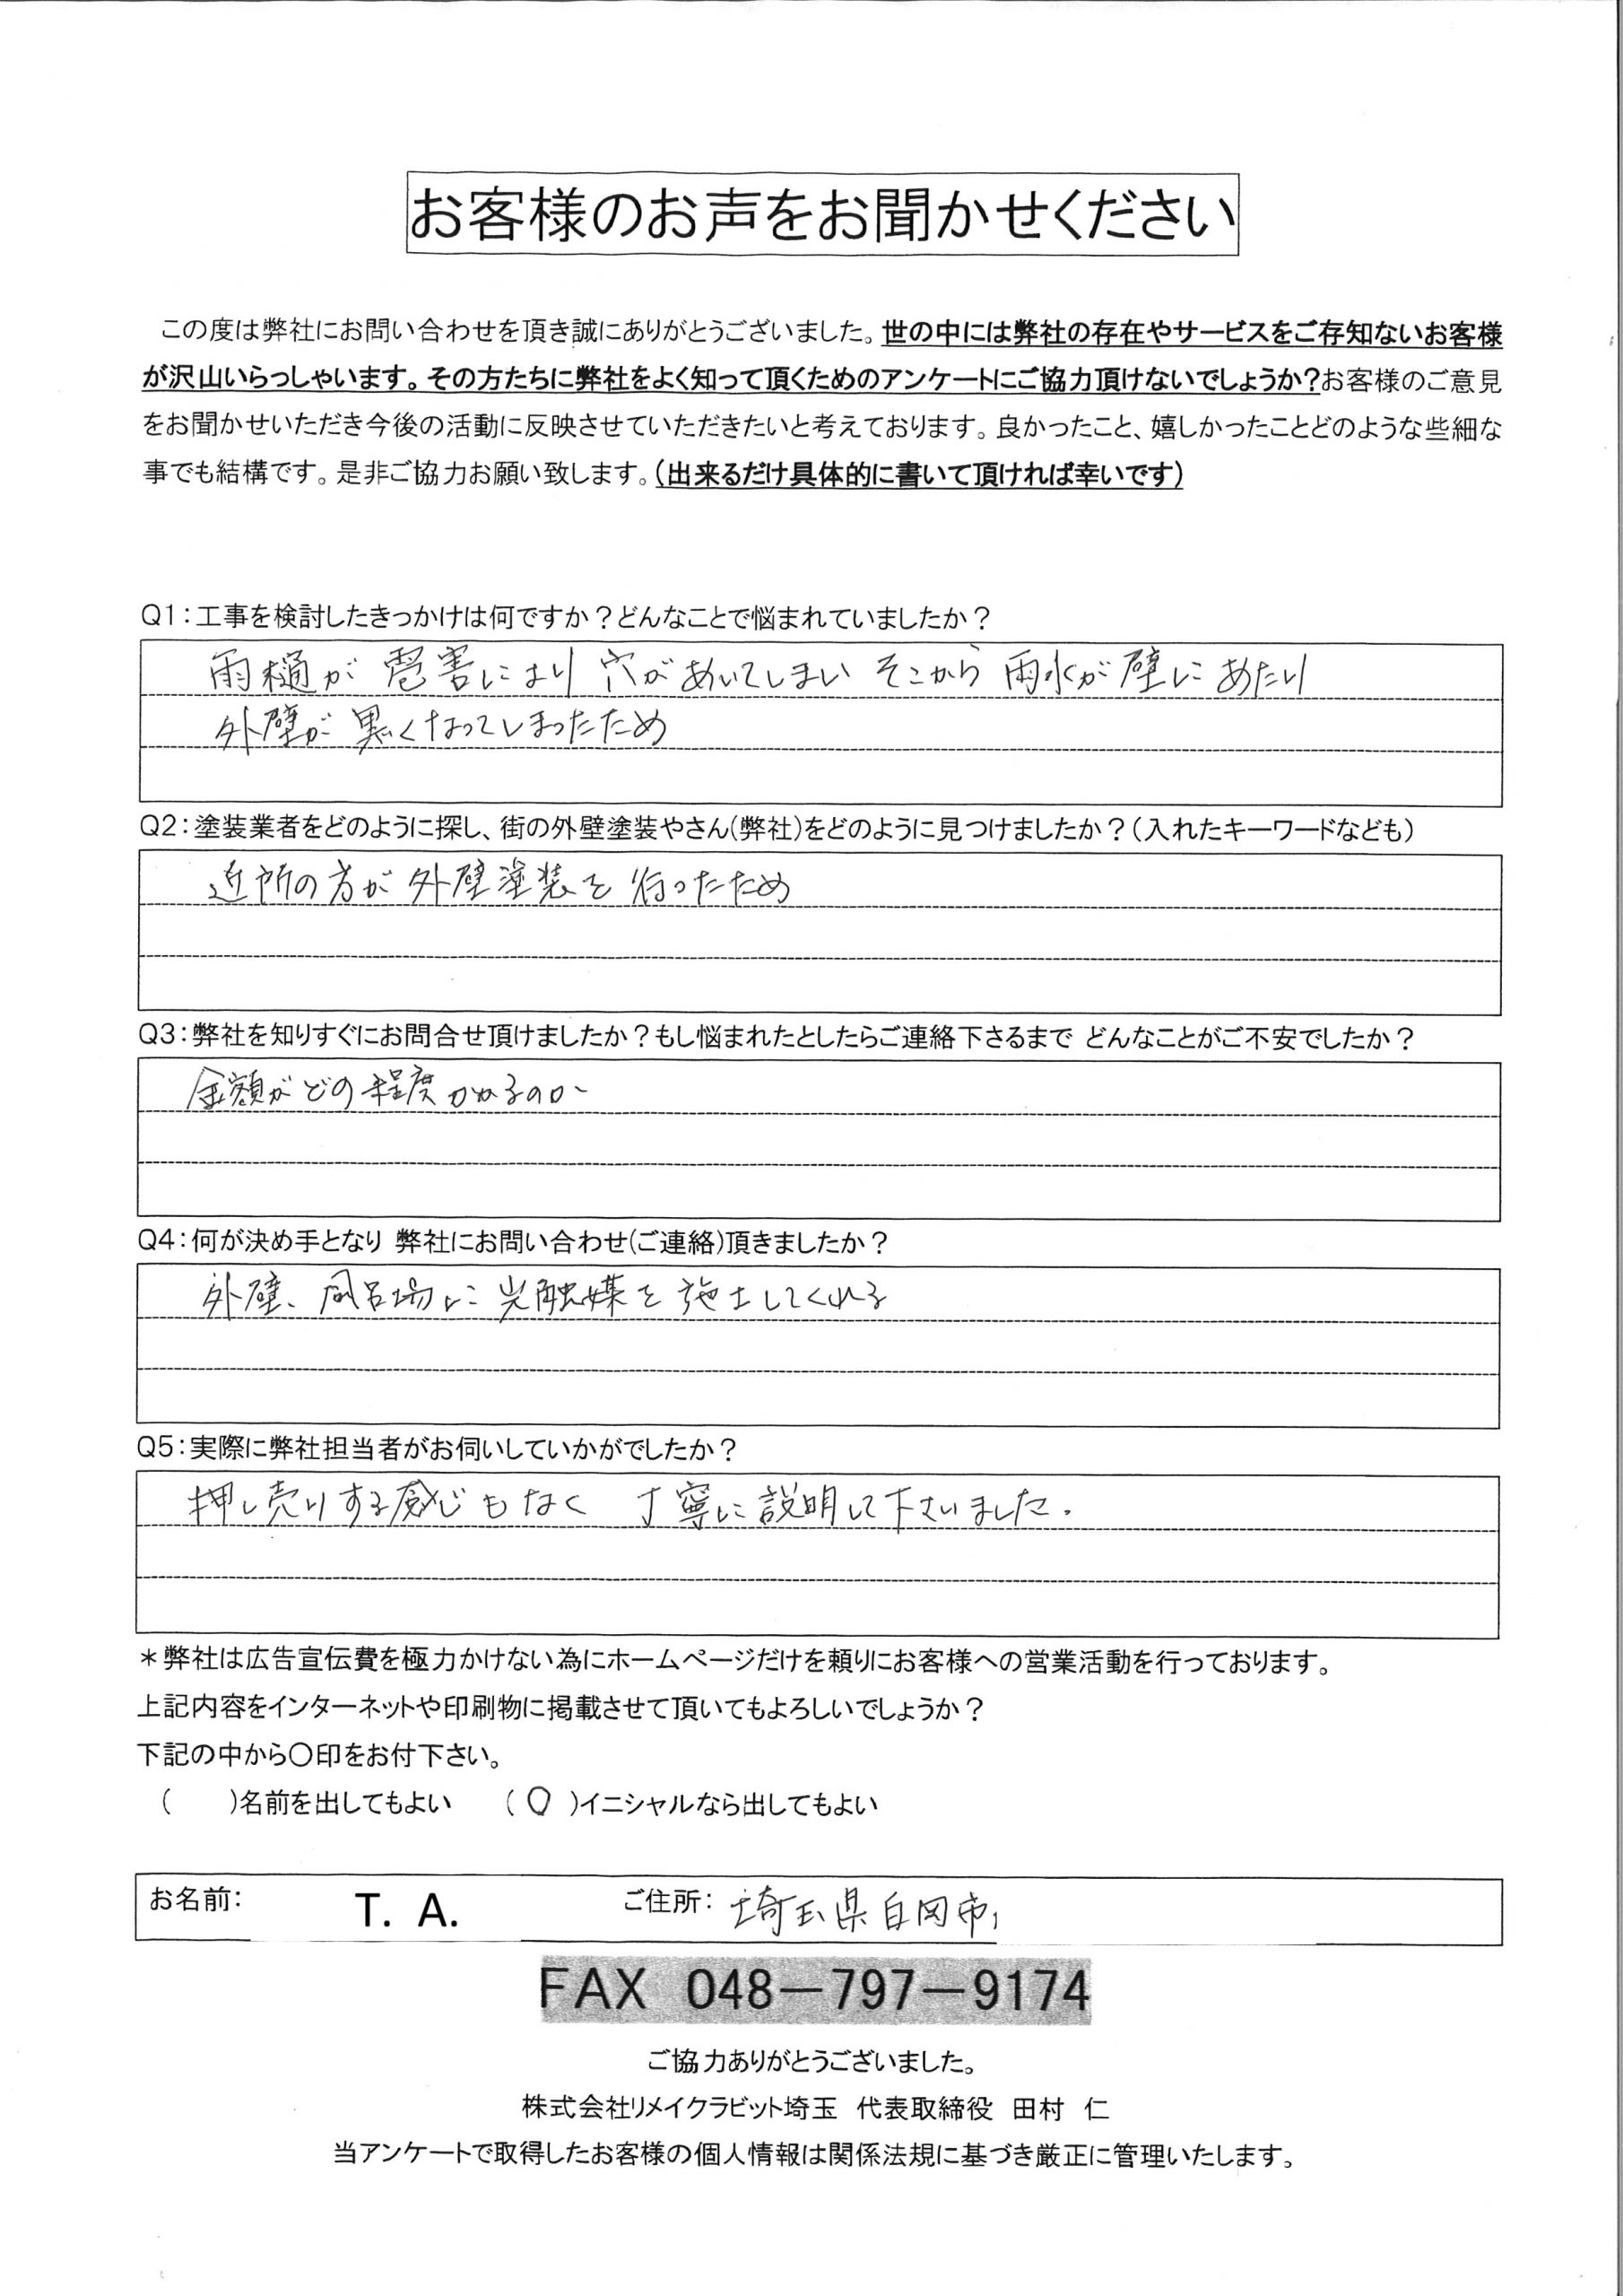 お客様のお声をお聞かせください
この度は弊社にお問い合わせを頂き誠にありがとうございました。世の中には弊社の存在やサービスをご存知ないお客様
が沢山いらっしゃいます。その方たちに弊社をよく知って頂くためのアンケートにご協力頂けないでしょうか?お客様のご意見
をお聞かせいただき今後の活動に反映させていただきたいと考えております。良かったこと、嬉しかったことどのような些細な
事でも結構です。是非ご協力お願い致します。(出来るだけ具体的に書いて頂ければ幸いです)
Q1:工事を検討したきっかけは何ですか?どんなことで悩まれていましたか?
雨樋が雹害により穴があいてしまいそこから雨水が壁にあたり
外壁が黒くなってしまったため
Q2:塗装業者をどのように探し、街の外壁塗装やさん(弊社)をどのように見つけましたか?(入れたキーワードなども)
近所の方が外壁塗装を行ったため
Q3:弊社を知りすぐにお問合せ頂けましたか?もし悩まれたとしたらご連絡下さるまで どんなことがご不安でしたか?
金額がどの程度かかるのか
Q4:何が決め手となり 弊社にお問い合わせ(ご連絡)頂きましたか?
外壁、風呂場に光触媒を施工してくれる
Q5:実際に弊社担当者がお伺いしていかがでしたか?
押し売りする感じもなく 丁寧に説明して下さいました。
*弊社は広告宣伝費を極力かけない為にホームページだけを頼りにお客様への営業活動を行っております。
上記内容をインターネットや印刷物に掲載させて頂いてもよろしいでしょうか?
下記の中から〇印をお付下さい。
(　　)名前を出してもよい　(〇)イニシャルなら出してもよい
お名前: T. A. ご住所: 埼玉県白岡市
FAX 048-797-9174
ご協力ありがとうございました。
株式会社リメイクラビット埼玉 代表取締役 田村 仁
当アンケートで取得したお客様の個人情報は関係法規に基づき厳正に管理いたします。